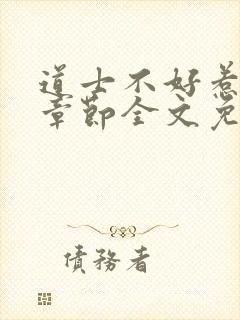 道士不好惹
章節全文免
債務者